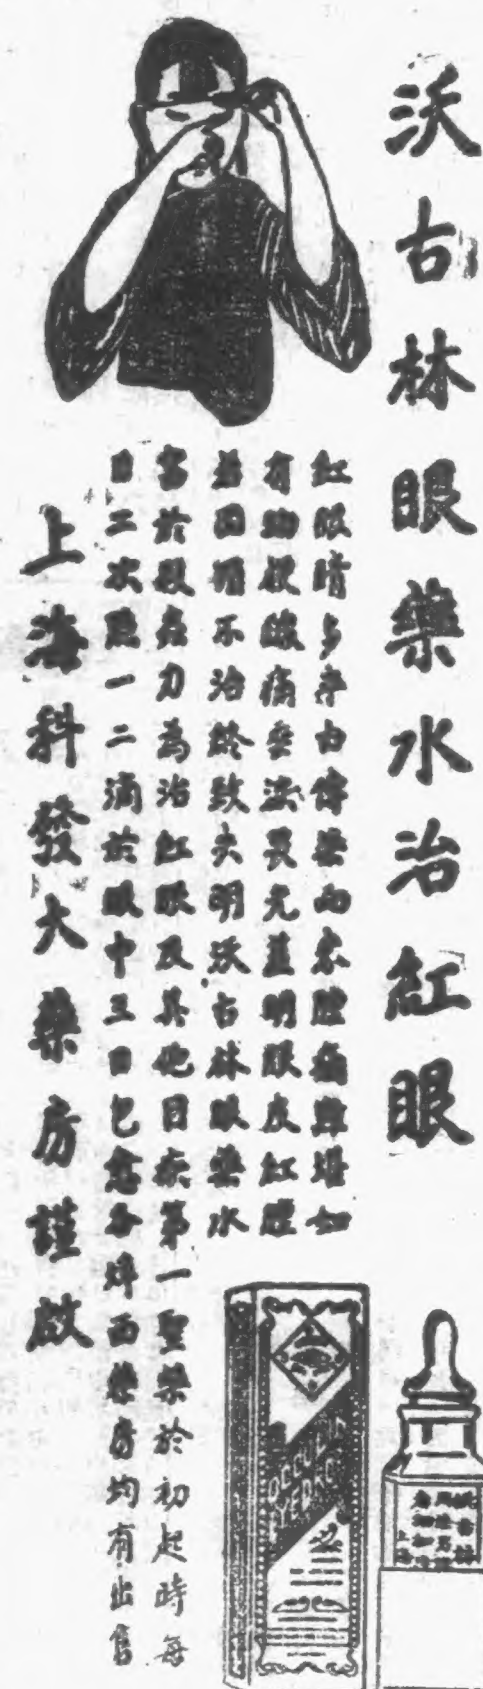 沃古林眼藥水治紅眼
紅眼睛多半由傳染而來腫痛難堪如
有物梗酸痛無淚畏光羞明眼皮紅腫
若因循不治終致失明沃古林眼藥水
富於殺菌力為治紅眼及其他目疾第一聖藥於初起時每
日三次點一二滴於眼中三日包愈各埠西藥房均有出售
上海科發大藥房謹啟
OCCULIN
EYEDROP
沃古林
上海